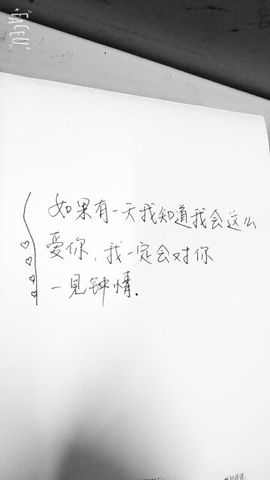 FACEU
如果有一天我知道我会这么
爱你，我一定会对你
一见钟情.